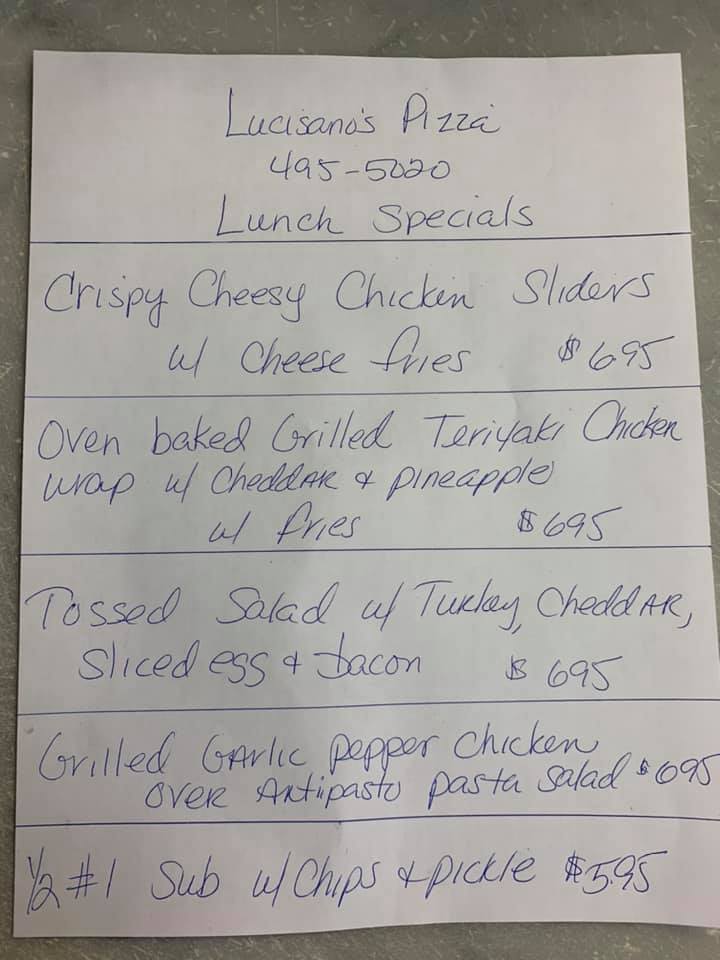 Lucisano's Pizza
495-5020
Lunch Specials
Crispy Cheesy Chicken Sliders
w/ Cheese fries $695
Oven baked Grilled Teriyaki Chicken
wrap w/ Cheddar & pineapple
w/ fries $695
Tossed Salad w/ Turkey, Cheddar,
Sliced egg & bacon $695
Grilled Garlic pepper chicken
over Antipasto pasta salad $695
1/2 #1 Sub w/ Chips & pickle $5.95